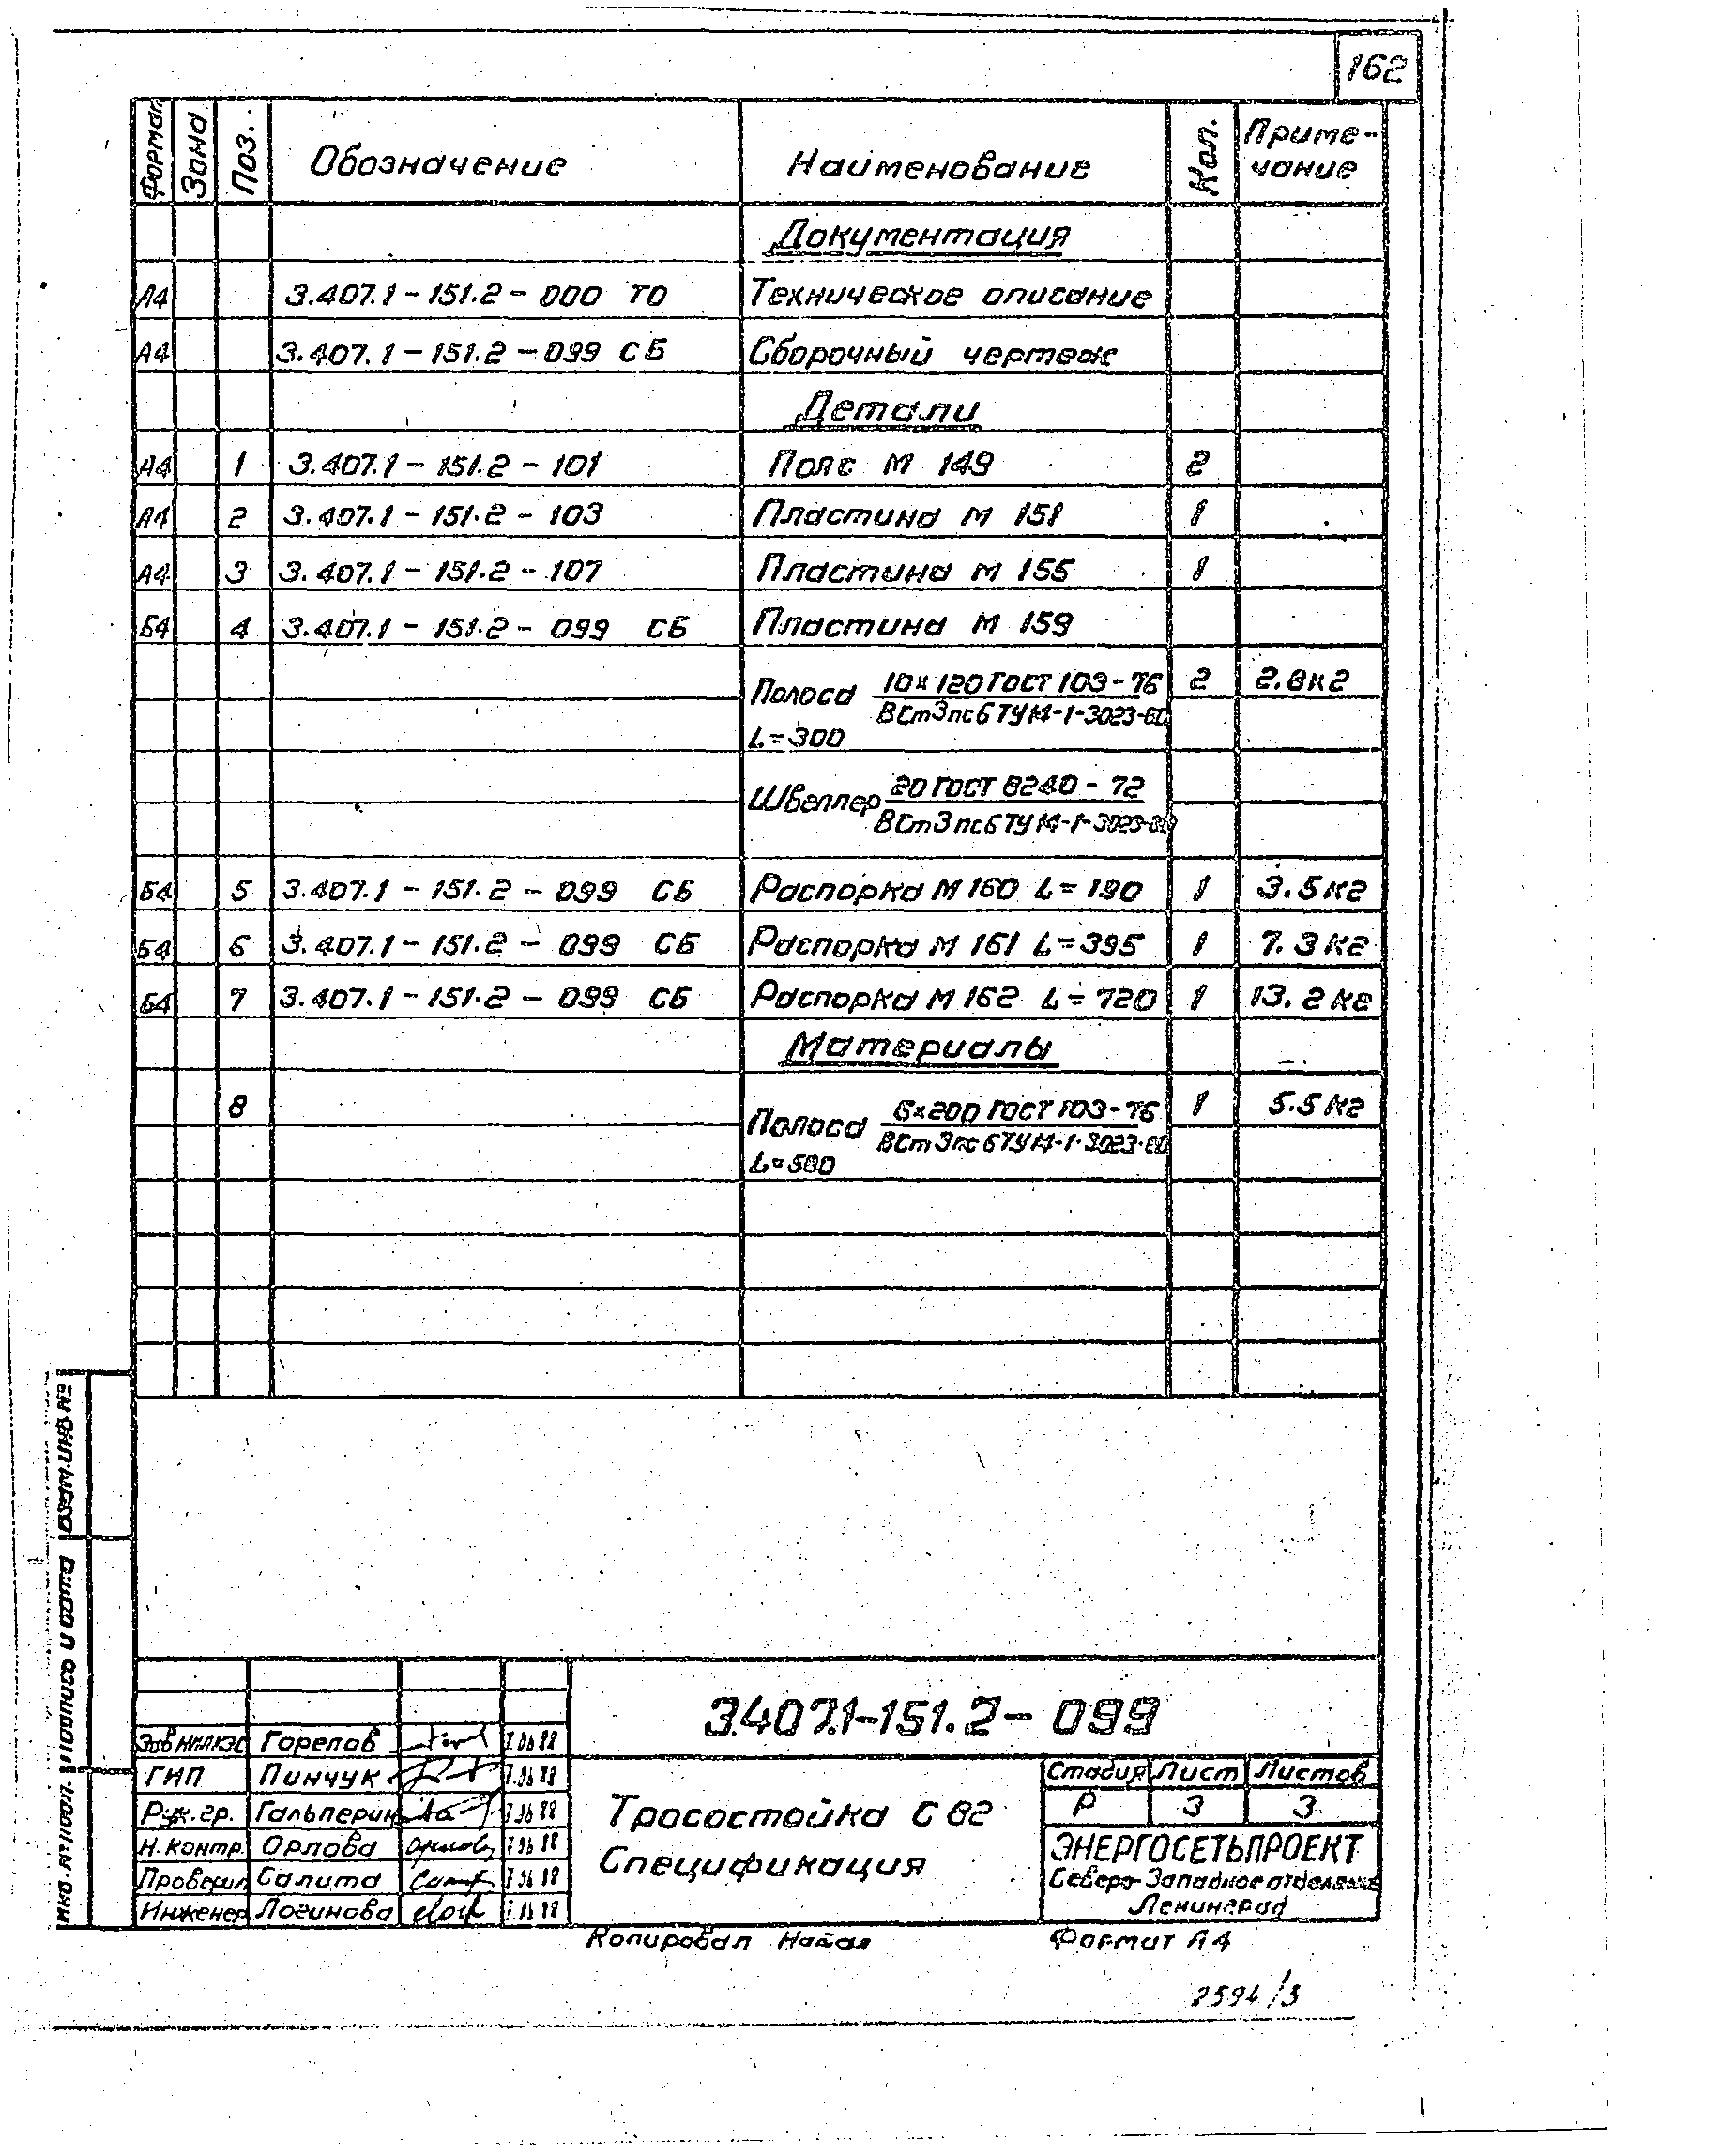 162
Формат Зона Поз. Обозначение Наименование Кол. Приме-
чание
Документация
А4 3.407.1-151.2-000 ТО Техническое описание
А4 3.407.1-151.2-099 СБ Сборочный чертеж
Детали
А4 1 3.407.1-151.2-101 Пояс М 149 2
А4 2 3.407.1-151.2-103 Пластина М 151 1
А4 3 3.407.1-151.2-107 Пластина М 155 1
Б4 4 3.407.1-151.2-099 СБ Пластина М 159
Полоса 10×120 ГОСТ 103-76 2 2.8кг
ВСт3пс6 ТУ14-1-3023-80
L=300
Швеллер 20 ГОСТ 8240-72
ВСт3пс6 ТУ14-1-3023-80
Б4 5 3.407.1-151.2-099 СБ Распорка М 160 L=190 1 3.5кг
Б4 6 3.407.1-151.2-099 СБ Распорка М 161 L=395 1 7.3кг
Б4 7 3.407.1-151.2-099 СБ Распорка М 162 L=720 1 13.2кг
Материалы
8 Полоса 6×200 ГОСТ 103-76 1 5.5кг
ВСт3пс6 ТУ14-1-3023-80
L=580
Взам.инв.№
Подпись и дата
Инв.№ подл.
3.407.1-151.2-099
Зав НИЛКЭС Горелов
ГИП Пинчук
Рук.гр. Гальперин
Н.контр. Орлова
Проверил Салита
Инженер Логинова
Тросостойка С 82
Спецификация
Стадия Лист Листов
Р 3 3
ЭНЕРГОСЕТЬПРОЕКТ
Северо-Западное отделение
Ленинград
Копировал Формат А4